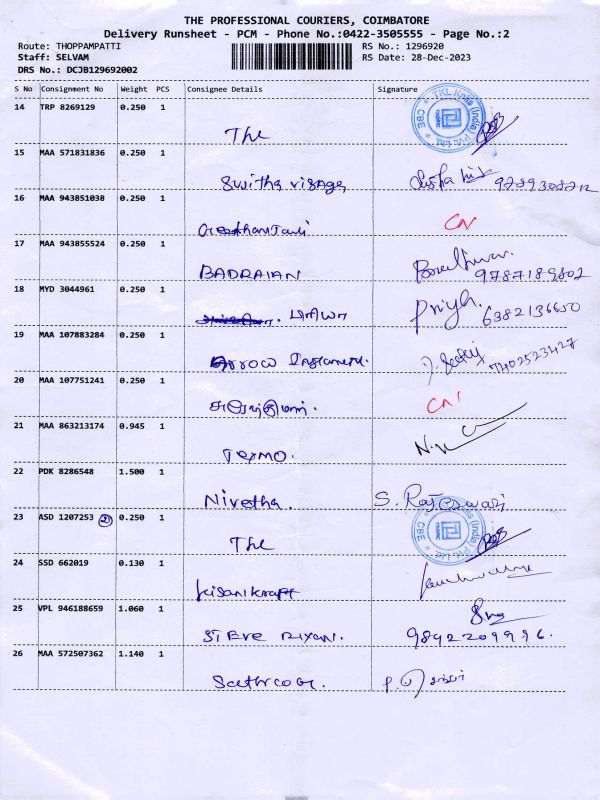 THE PROFESSIONAL COURIERS, COIMBATORE
Delivery Runsheet - PCM - Phone No.:0422-3505555 - Page No.:2
Route: THOPPAMPATTI RS No.: 1296920
Staff: SELVAM RS Date: 28-Dec-2023
DRS No.: DCJB129692002
S No Consignment No Weight PCS Consignee Details Signature
14 TRP 8269129 0.250 1
The
15 MAA 571831836 0.250 1
Sujitha
16 MAA 943851038 0.250 1
CN
17 MAA 943855524 0.250 1
BADRAIAN 9787189802
18 MYD 3044961 0.250 1
பிரியா Priya. 6382136650
19 MAA 107883284 0.250 1
Arrow 7402523427
20 MAA 107751241 0.250 1
CN
21 MAA 863213174 0.945 1
TERMO.
22 PDK 8286548 1.500 1
Nivetha. S. Rajeswari
23 ASD 1207253 2 0.250 1
The
24 SSD 662019 0.130 1
Kisankraft
25 VPL 946188659 1.060 1
STEVE 9842209996.
26 MAA 572507362 1.140 1